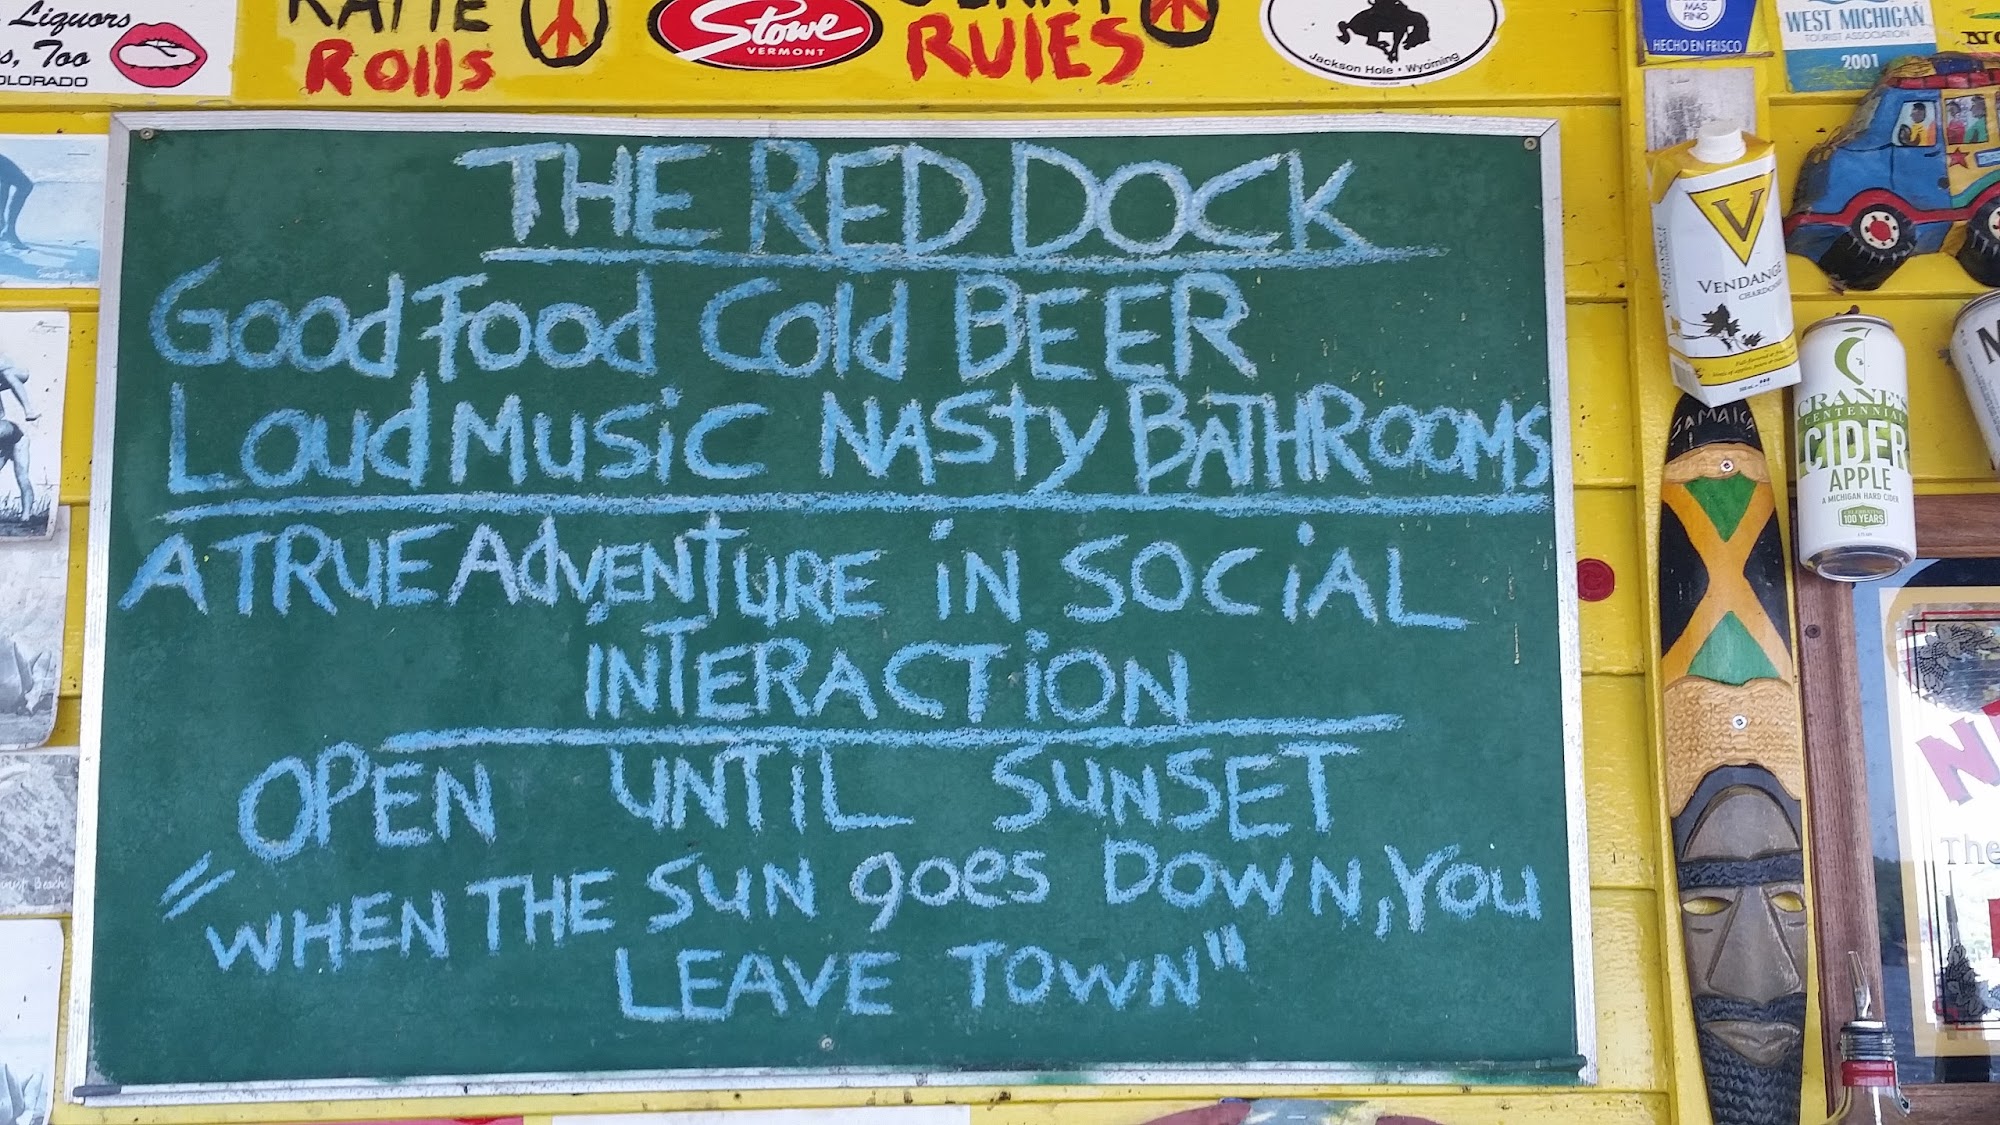 Liquors
Too
COLORADO
KATIE
ROllS
Stowe
VERMONT
RULES
Jackson Hole • Wyoming
MAS
FINO
HECHO EN FRISCO
WEST MICHIGAN
TOURIST ASSOCIATION
2001
THE RED DOCK
Good Food Cold BEER
Loud Music NASty BATHROOMS
A TRUE AdVENTURE iN SOCiAL
iNTERACTiON
OPEN UNTIL SUNSET
"WHEN THE SUN goes DOWN, YOU
LEAVE TOWN"
V
VENDANGE
CHARDONNAY
JAMAICA
CRANE'S
CENTENNIAL
CIDER
APPLE
A MICHIGAN HARD CIDER
CELEBRATING
100 YEARS
The